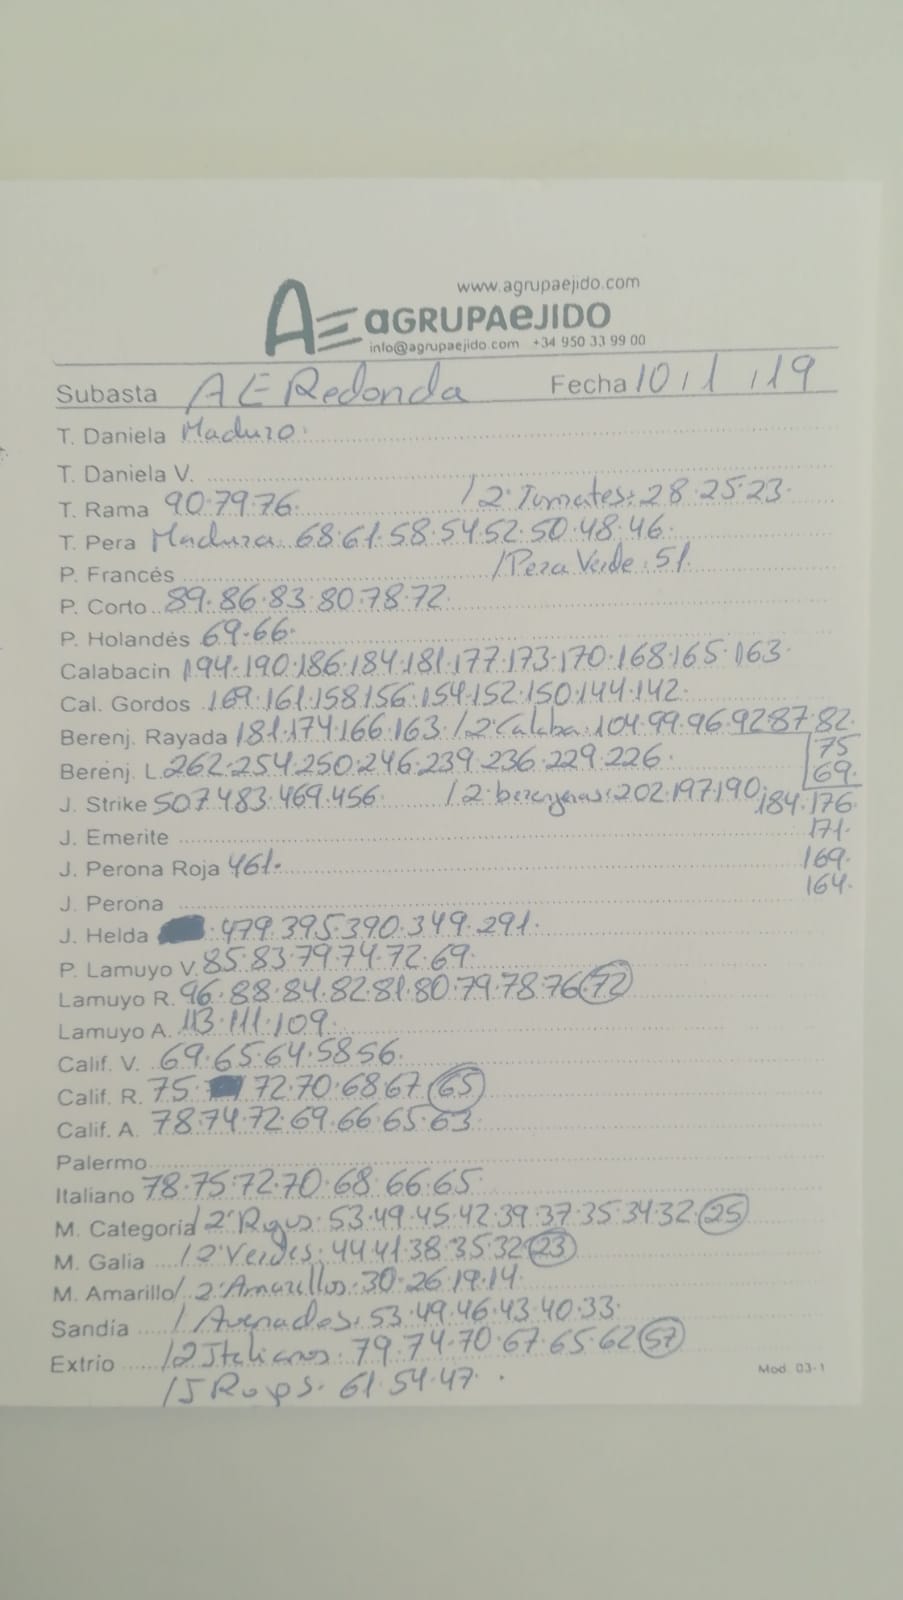 www.agrupaejido.com
AE aGRUPAeJIDO
info@agrupaejido.com +34 950 33 99 00
Subasta AE Redonda Fecha 10/1/19
T. Daniela Maduro.
T. Daniela V.
T. Rama 90.79.76. /2ª Tomates: 28.25.23.
T. Pera Madura. 68.61.58.54.52.50.48.46.
P. Francés /Pera Verde. 51.
P. Corto 89.86.83.80.78.72.
P. Holandés 69.66.
Calabacín 194.190.186.184.181.177.173.170.168.165.163.
Cal. Gordos 169.161.158.156.154.152.150.144.142.
Berenj. Rayada 181.174.166.163. /2ª Calaba. 104.99.96.92.87.82.
75
Berenj. L. 262.254.250.246.239.236.229.226.
69.
J. Strike 507.483.469.456. /2ª berenjenas: 202.197.190.
184.176.
J. Emerite 171.
J. Perona Roja 461. 169.
J. Perona 164.
J. Helda 479.395.390.349.291.
P. Lamuyo V. 85.83.79.74.72.69.
Lamuyo R. 96.88.84.82.81.80.79.78.76.72
Lamuyo A. 113.111.109.
Calif. V. 69.65.64.58.56.
Calif. R. 75. 72.70.68.67.65
Calif. A. 78.74.72.69.66.65.63.
Palermo
Italiano 78.75.72.70.68.66.65.
M. Categoría /2ª Rojos. 53.49.45.42.39.37.35.34.32.25
M. Galia /2ª Verdes: 44.41.38.35.32.23
M. Amarillo /2ª Amarillos. 30.26.19.14.
Sandía / Asperados. 53.49.46.43.40.33.
Extrío /2 Italianos. 79.74.70.67.65.62.57
Mod. 03-1
/J Rojos. 61.54.47.